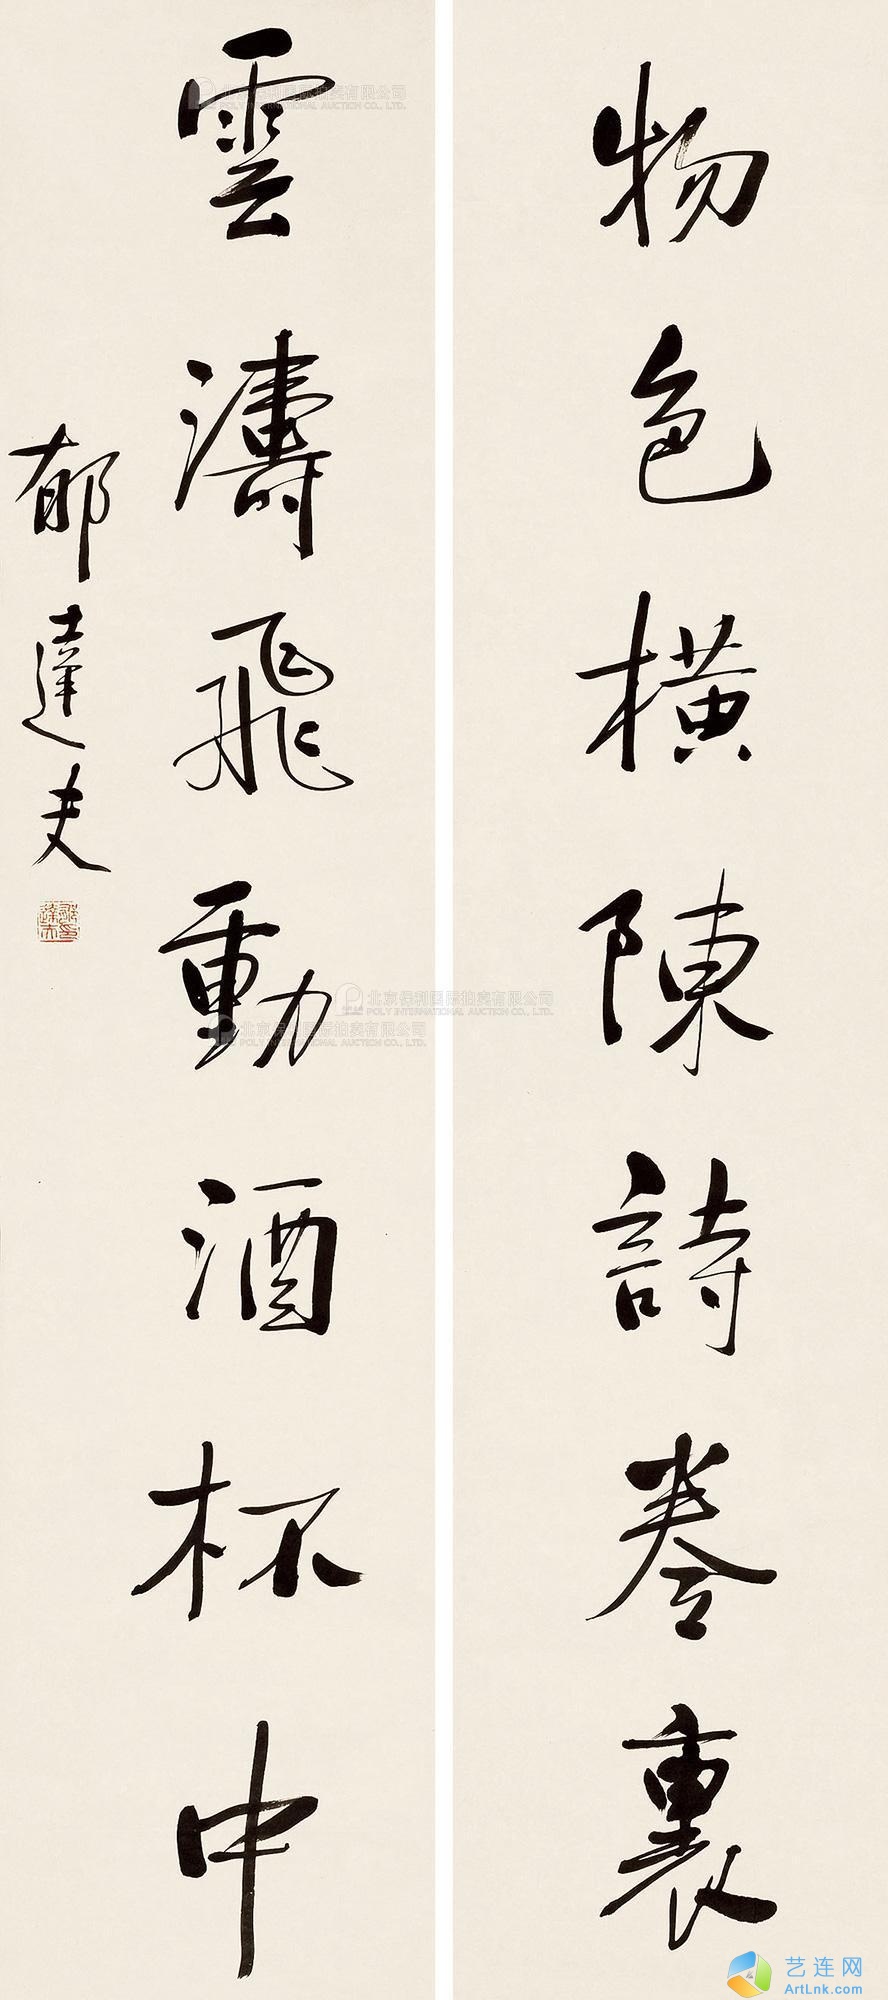 物色橫陳詩卷裏
雲濤飛動酒杯中
郁達夫
北京保利国际拍卖有限公司
POLY INTERNATIONAL AUCTION CO., LTD.
北京保利国际拍卖有限公司
POLY INTERNATIONAL AUCTION CO., LTD.
北京保利国际拍卖有限公司
POLY INTERNATIONAL AUCTION CO., LTD.
艺连网
ArtLnk.com